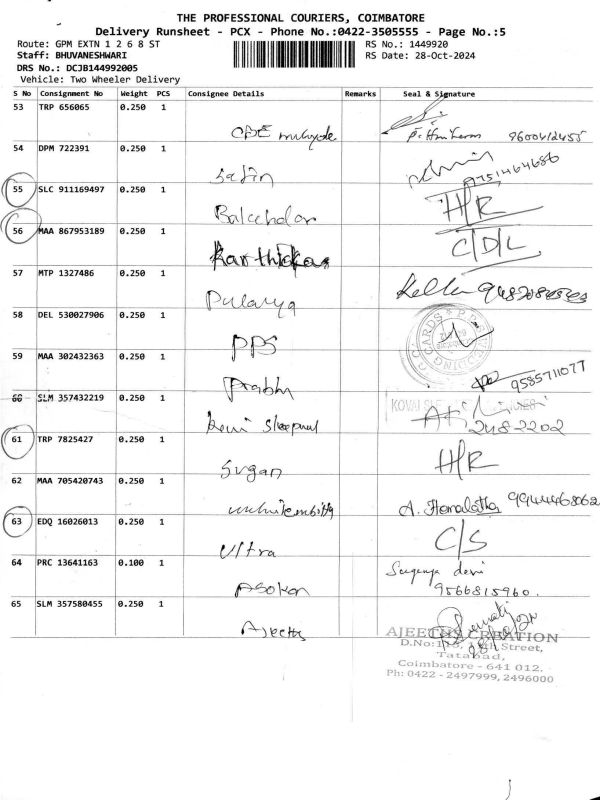 THE PROFESSIONAL COURIERS, COIMBATORE
Delivery Runsheet - PCX - Phone No.:0422-3505555 - Page No.:5
Route: GPM EXTN 1 2 6 8 ST RS No.: 1449920
Staff: BHUVANESHWARI RS Date: 28-Oct-2024
DRS No.: DCJB144992005
Vehicle: Two Wheeler Delivery
S No Consignment No Weight PCS Consignee Details Remarks Seal & Signature
53 TRP 656065 0.250 1
9600412455
54 DPM 722391 0.250 1
9751464686
55 SLC 911169497 0.250 1
H/R
56 MAA 867953189 0.250 1
Karthickas C/D/L
57 MTP 1327486 0.250 1
58 DEL 530027906 0.250 1
PPS
59 MAA 302432363 0.250 1
Prabhu 9585711077
60 SLM 357432219 0.250 1
248-2202
61 TRP 7825427 0.250 1
Sugan H/R
62 MAA 705420743 0.250 1
A. Hemalatha
63 EDQ 16026013 0.250 1
Ultra C/S
64 PRC 13641163 0.100 1
Asokan Suganya devi
9566815960.
65 SLM 357580455 0.250 1
Ajeeths
AJEETHS CREATION
Street,
Tatabad,
Coimbatore - 641 012.
Ph: 0422 - 2497999, 2496000